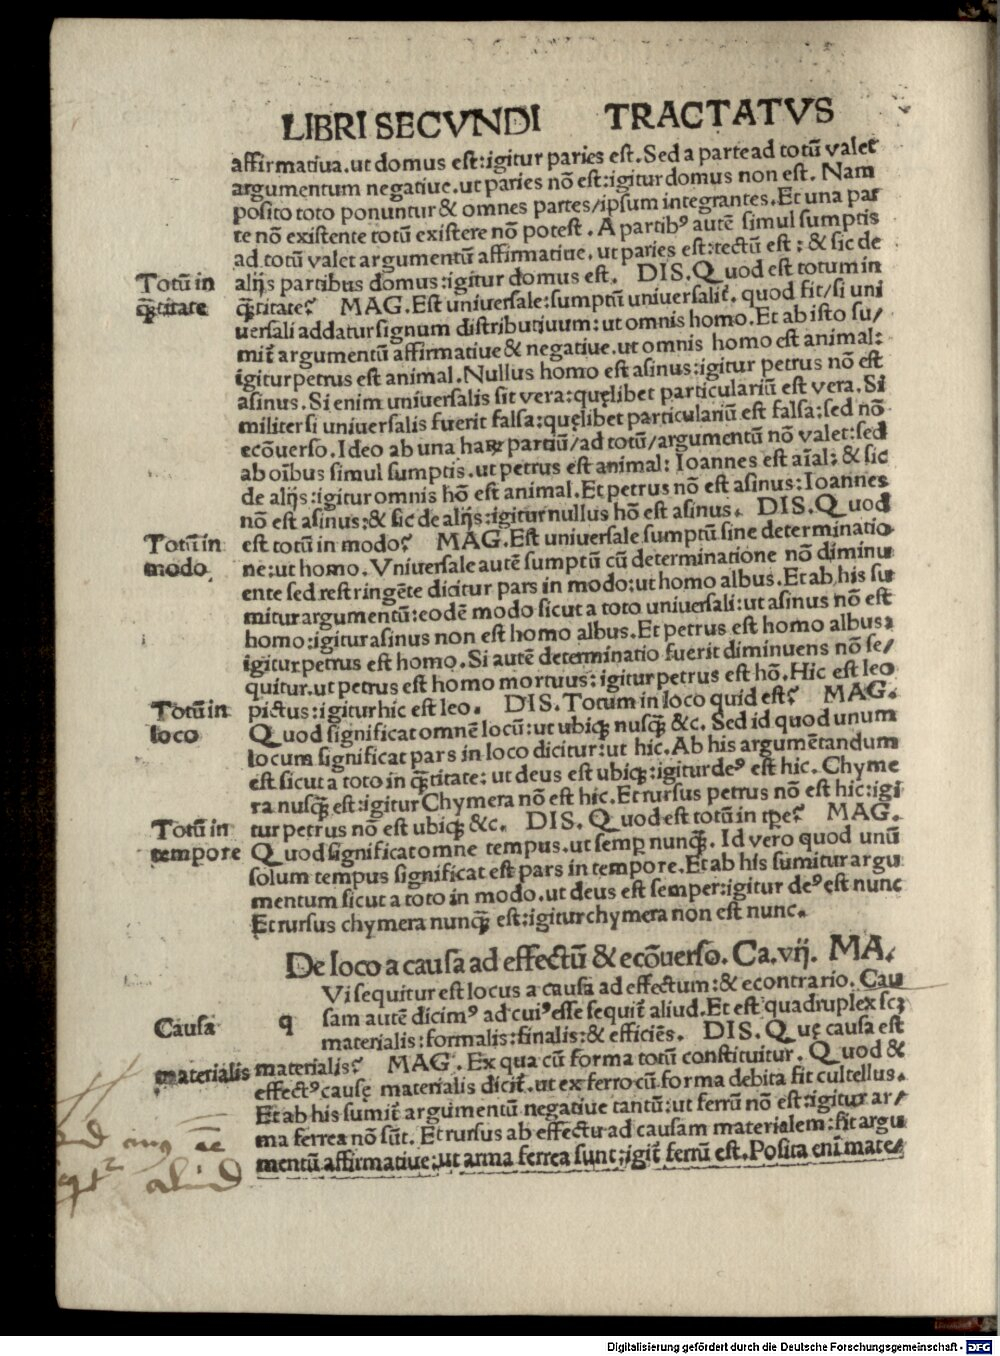 LIBRI SECVNDI TRACTATVS
affirmatiua. ut domus est: igitur paries est. Sed a parte ad totū valet
argumentum negatiue. ut paries nō est: igitur domus non est. Nam
posito toto ponuntur & omnes partes/ipsum integrantes. Et una par
te nō existente totū existere nō potest. A partibꝰ autē simul sumptis
ad totū valet argumentū affirmatiue. ut paries est: tectū est: & sic de
Totū in
alijs partibus domus: igitur domus est. DIS. Quod est totum in
q̄titate
q̄titate? MAG. Est uniuersale: sumptū uniuersalit̄. quod fit/si uni
uersali addatur signum distributiuum: ut omnis homo. Et ab isto su/
mit̄ argumentū affirmatiue & negatiue. ut omnis homo est animal:
igitur petrus est animal. Nullus homo est asinus: igitur petrus nō est
asinus. Si enim uniuersalis sit vera: quęlibet particulariū est vera. Si
militer si uniuersalis fuerit falsa: quęlibet particulariū est falsa: sed nō
ecōuerso. Ideo ab una haꝝ partiū/ad totū/argumentū nō valet: sed
ab oībus simul sumptis. ut petrus est animal: Ioannes est aīal: & sic
de alijs: igitur omnis hō est animal. Et petrus nō est asinus: Ioannes
nō est asinus: & sic de alijs: igitur nullus hō est asinus. DIS. Quod
Totū in
est totū in modo? MAG. Est uniuersale sumptū sine determinatio
modo
ne: ut homo. Vniuersale autē sumptū cū determinatione nō diminu
ente sed restringēte dicitur pars in modo: ut homo albus. Et ab his su
mitur argumentū: eodē modo sicut a toto uniuersali: ut asinus nō est
homo: igitur asinus non est homo albus. Et petrus est homo albus:
igitur petrus est homo. Si autē determinatio fuerit diminuens nō se/
quitur. ut petrus est homo mortuus: igitur petrus est hō. Hic est leo
Totū in
pictus: igitur hic est leo. DIS. Totum in loco quid est? MAG.
loco
Quod significat omnē locū: ut ubiqꝫ nusq̄ &c. Sed id quod unum
locum significat pars in loco dicitur: ut hic. Ab his argumētandum
est sicut a toto in q̄titate: ut deus est ubiqꝫ: igitur deꝰ est hic. Chyme
ra nusq̄ est: igitur Chymera nō est hic. Et rursus petrus nō est hic: igi
Totū in
tur petrus nō est ubiqꝫ &c. DIS. Quod est totū in tpe? MAG.
tempore
Quod significat omne tempus. ut semp nunq̄. Id vero quod unū
solum tempus significat est pars in tempore. Et ab his sumitur argu
mentum sicut a toto in modo. ut deus est semper: igitur deꝰ est nunc
Et rursus chymera nunq̄ est: igitur chymera non est nunc.
De loco a causa ad effectū & ecōuerso. Ca. vij. MA.
Vi sequitur est locus a causa ad effectum: & econtrario. Cau
Causa
q sam autē dicimꝰ ad cuiꝰ esse sequit̄ aliud. Et est quadruplex scꝫ
materialis: formalis: finalis: & efficiēs. DIS. Quę causa est
materialis
materialis? MAG. Ex qua cū forma totū constituitur. Quod &
effectꝰ causę materialis dicit̄. ut ex ferro cū forma debita fit cultellus.
Et ab his sumit̄ argumentū negatiue tantū: ut ferrū nō est: igitur ar/
ma ferrea nō sūt. Et rursus ab effectu ad causam materialem: fit argu
mentū affirmatiue: ut arma ferrea sunt: igit̄ ferrū est. Posita enī mate/
aliud
Digitalisierung gefördert durch die Deutsche Forschungsgemeinschaft - DFG